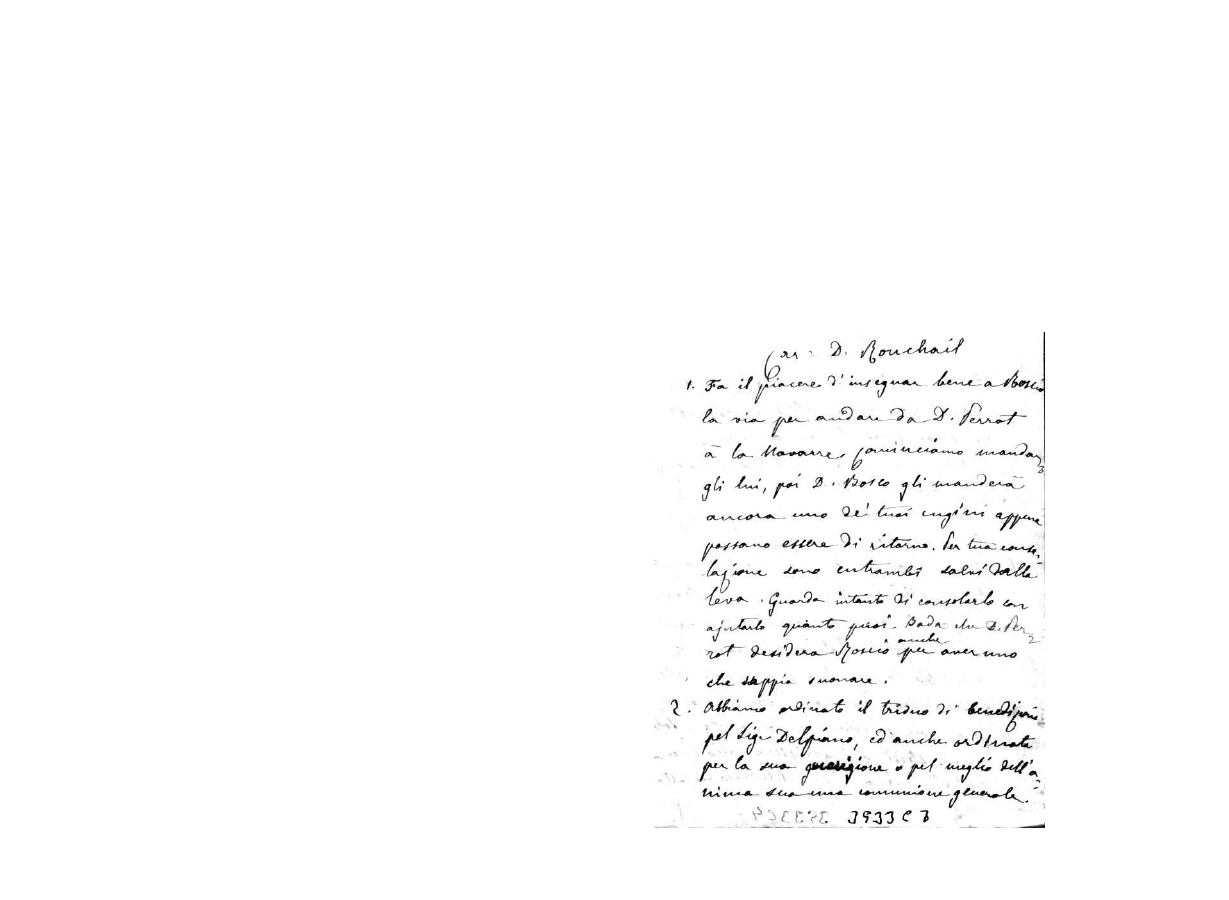 Car. D. Ronchail
1. Fa il piacere d'insegnar bene a Roscio
la via per andare da D. Perrot
à la Navarre, cominciamo mandar
gli lui, poi D. Bosco gli manderà
ancora uno de' tuoi cugini appena
possano essere di ritorno. Per tua conso-
lazione sono entrambi salvi dalla
leva. Guarda intanto di consolarlo con
ajutarlo quanto puoi. Bada che D. Per-
rot desidera Roscio anche per aver uno
che sappia suonare.
2. Abbiamo ordinato il triduo di benedizioni
pel Sig. Delpiano, ed anche ordinato
per la sua guarigione o pel meglio dell'a-
nima sua una comunione generale.
3933 C 3